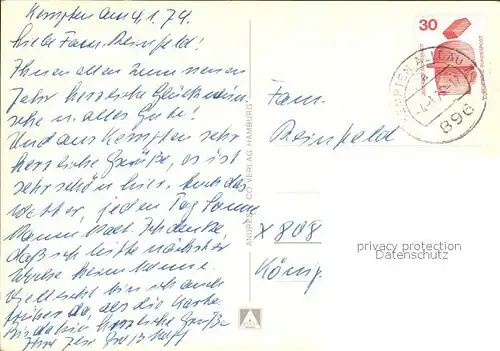 Kempten am 4.1.74.
Liebe Fam. Reinfeld!
Ihnen allen zum neuen
Jahr herzliche Glückwün-
sche u. alles Gute!
Und aus Kempten sehr
herzliche Grüße, es ist
sehr schön hier, auch das
Wetter, jeden Tag Sonne
Mann Ich denke,
daß ich bitte nächster
Woche heim komme.
Vielleicht bin ich auch
früher da, als die Karte.
Bis dahin herzliche Grüße
Ihre
ANDRES + CO VERLAG HAMBURG
30
DEUTSCHE BUNDESPOST
KEMPTEN ALLGÄU
896
Fam.
Reinfeld
X 808
König
privacy protection
watermark